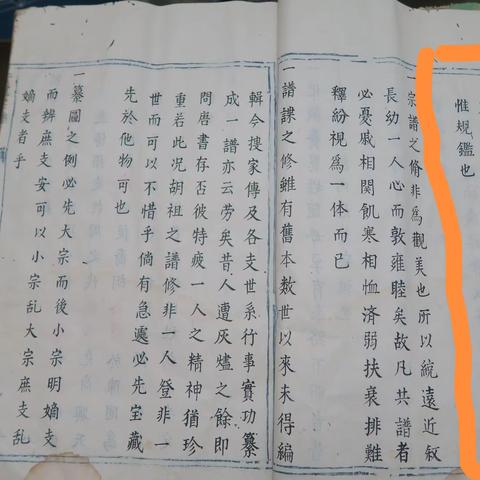 惟規鑑也
一宗譜之脩非為觀美也所以統遠近叙
長幼一人心而敦雍睦矣故凡共譜者
必憂戚相関飢寒相恤済弱扶衰排難
釋紛視為一体而已
一譜諜之修雖有舊本数世以來未得編
輯今搜家傳及各支世系行事實功纂
成一譜亦云劳矣昔人遭灰燼之餘即
問唐書存否彼特疲一人之精神猶珍
重若此况胡祖之譜修非一人登非一
世而可以不惜乎倘有急遽必先宝藏
先於他物可也
一纂圖之例必先大宗而後小宗明嫡支
而辨庶支安可以小宗乱大宗庶支乱
嫡支者乎